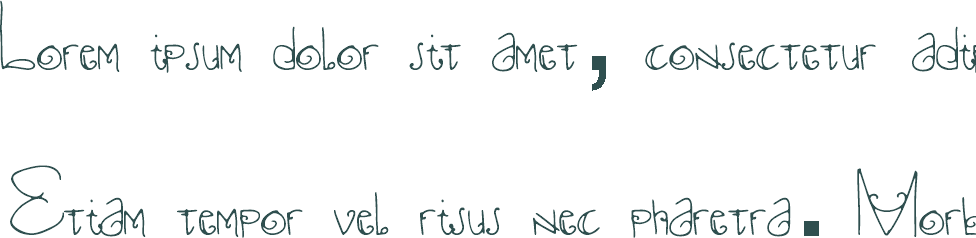 Lorem ipsum dolor sit amet, consectetur adip
Etiam tempor vel risus nec pharetra. Morb